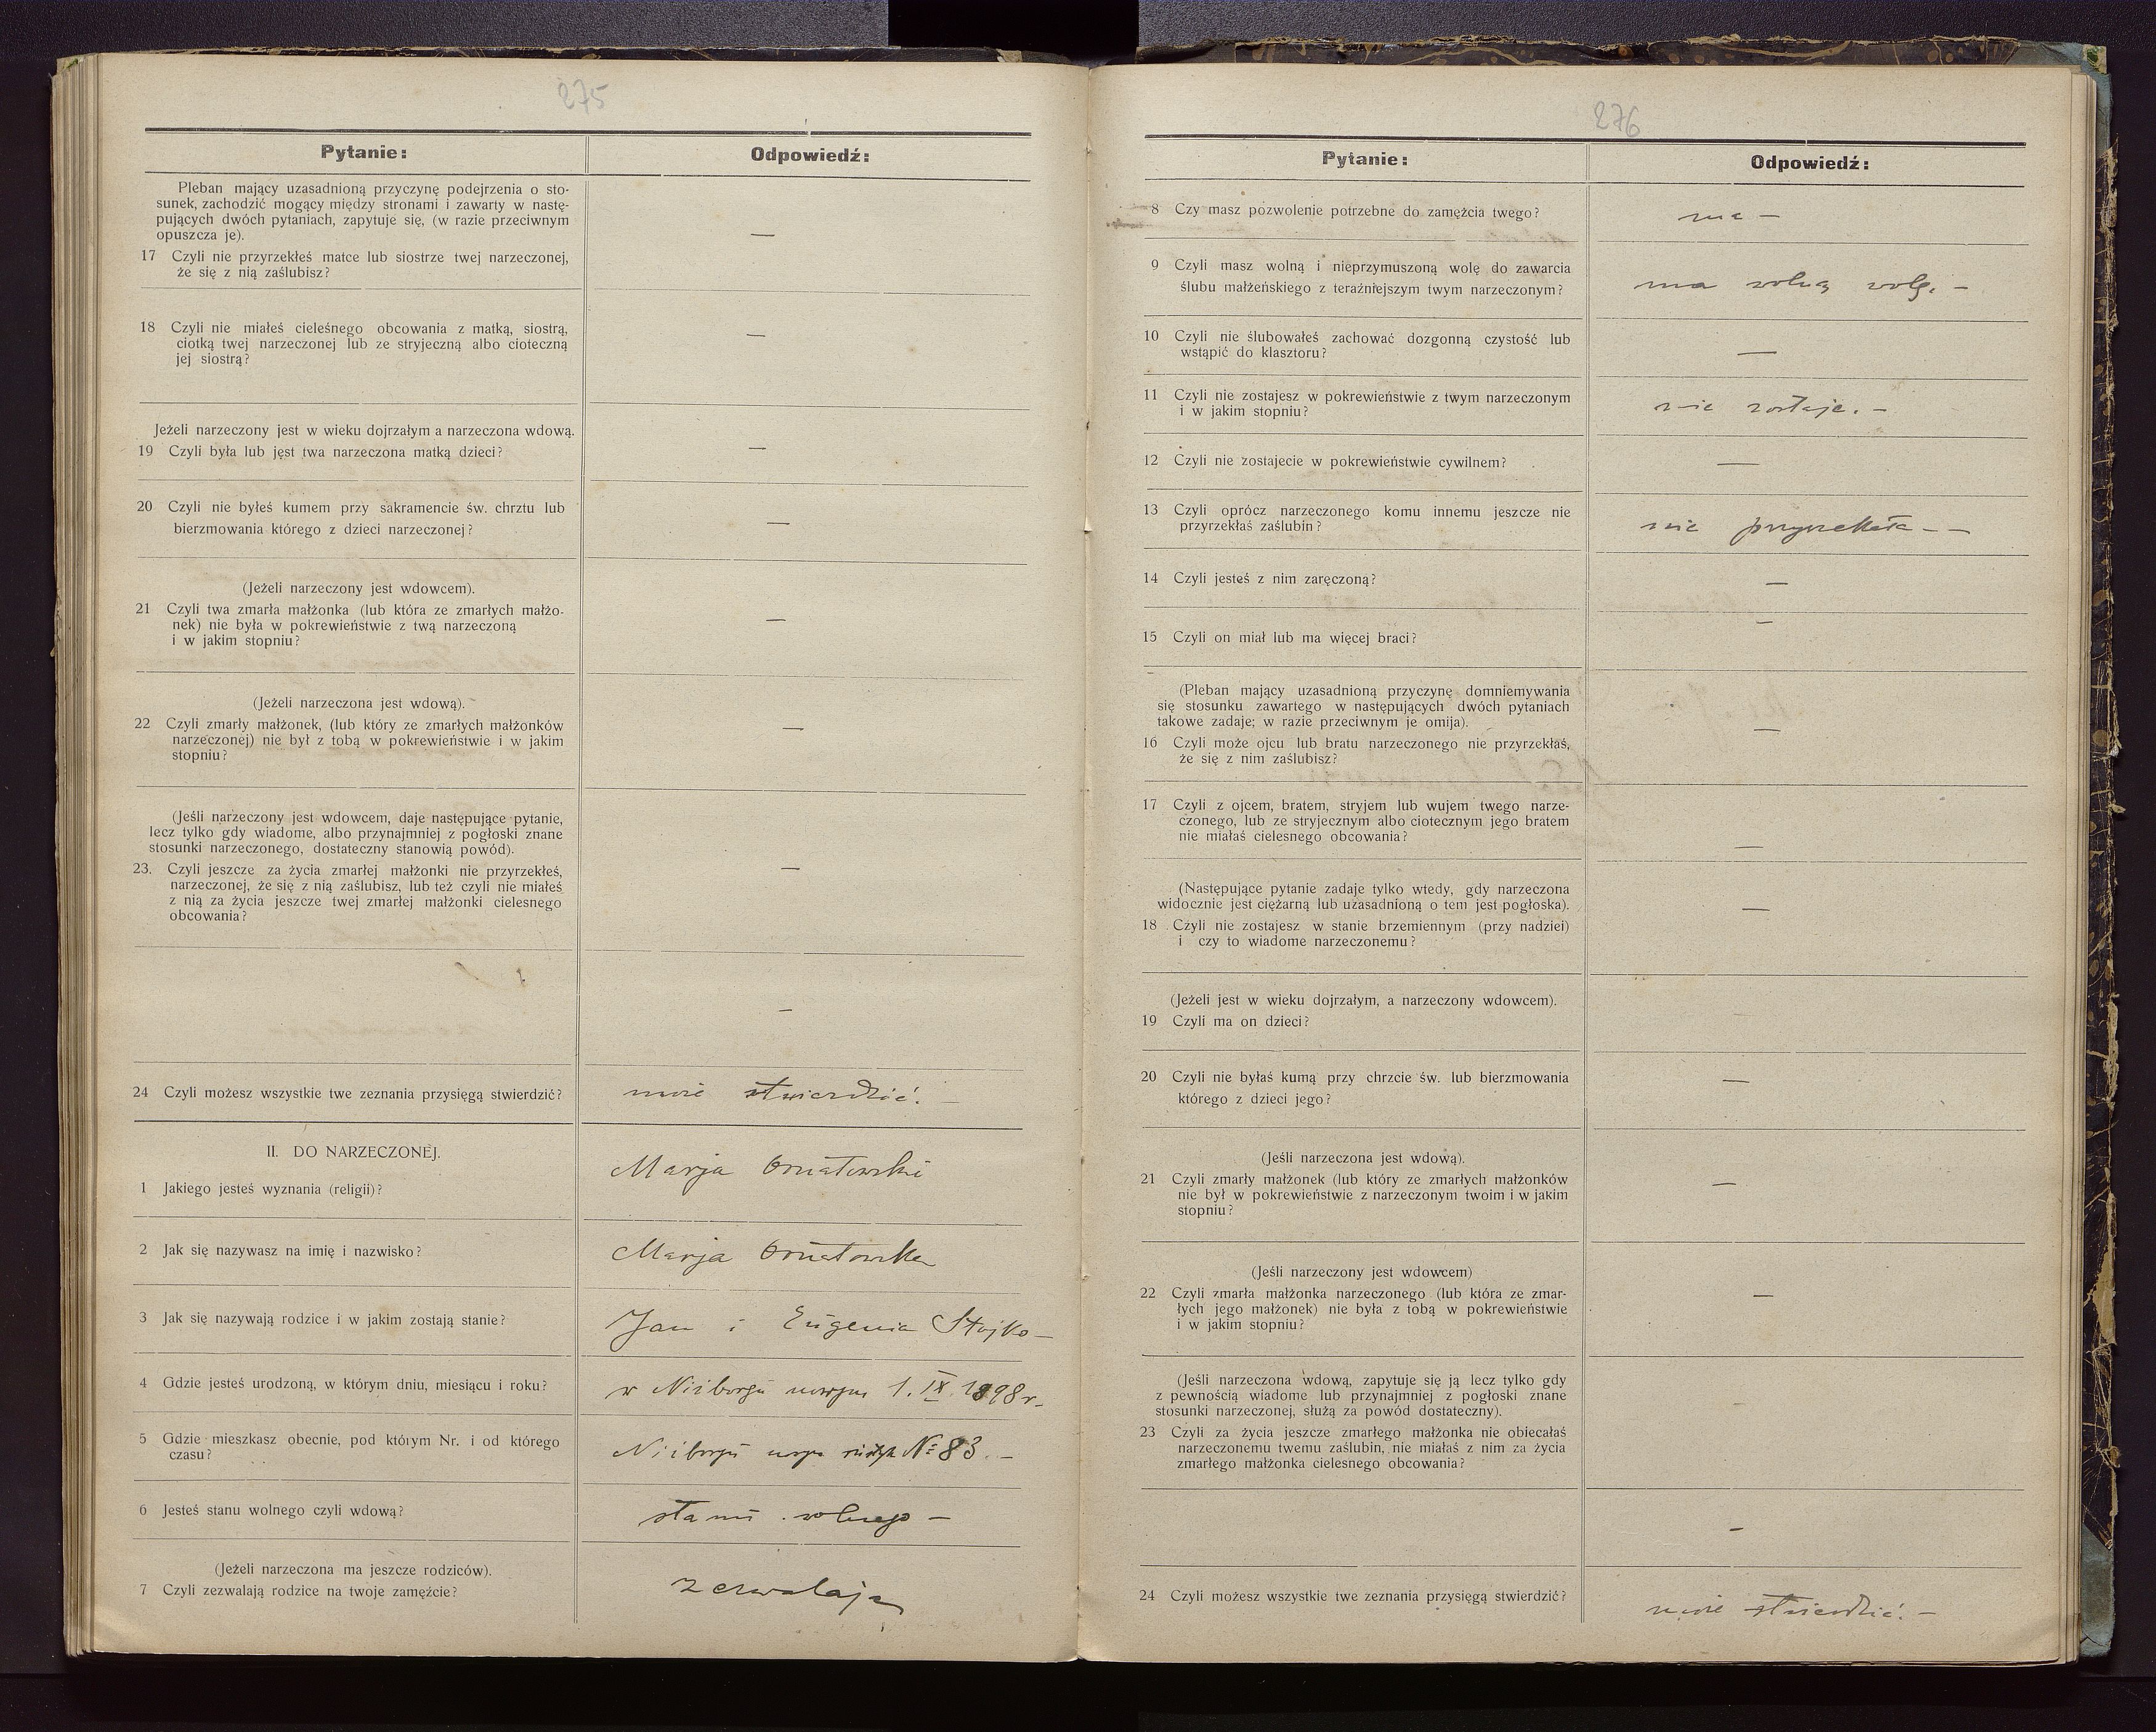 275
Pytanie:
Odpowiedź:
Pleban mający uzasadnioną przyczynę podejrzenia o sto-
sunek, zachodzić mogący między stronami i zawarty w nastę-
pujących dwóch pytaniach, zapytuje się, (w razie przeciwnym
opuszcza je).
—
17 Czyli nie przyrzekłeś matce lub siostrze twej narzeczonej,
że się z nią zaślubisz?
18 Czyli nie miałeś cieleśnego obcowania z matką, siostrą,
ciotką twej narzeczonej lub ze stryjeczną albo cioteczną
jej siostrą?
—
Jeżeli narzeczony jest w wieku dojrzałym a narzeczona wdową.
19 Czyli była lub jęst twa narzeczona matką dzieci?
—
20 Czyli nie byłeś kumem przy sakramencie św. chrztu lub
bierzmowania którego z dzieci narzeczonej?
—
(Jeżeli narzeczony jest wdowcem).
21 Czyli twa zmarła małżonka (lub która ze zmarłych małżo-
nek) nie była w pokrewieństwie z twą narzeczoną
i w jakim stopniu?
—
(Jeżeli narzeczona jest wdową).
22 Czyli zmarły małżonek, (lub który ze zmarłych małżonków
narzeczonej) nie był z tobą w pokrewieństwie i w jakim
stopniu?
—
(Jeśli narzeczony jest wdowcem, daje następujące pytanie,
lecz tylko gdy wiadome, albo przynajmniej z pogłoski znane
stosunki narzeczonego, dostateczny stanowią powód).
23. Czyli jeszcze za życia zmarłej małżonki nie przyrzekłeś,
narzeczonej, że się z nią zaślubisz, lub też czyli nie miałeś
z nią za życia jeszcze twej zmarłej małżonki cielesnego
obcowania?
—
—
24 Czyli możesz wszystkie twe zeznania przysięgą stwierdzić?
może stwierdzić. —
II. DO NARZECZONEJ.
1 Jakiego jesteś wyznania (religii)?
Marja
2 Jak się nazywasz na imię i nazwisko?
Marja Ornatowska
3 Jak się nazywają rodzice i w jakim zostają stanie?
Jan i Eugenia Stojko —
4 Gdzie jesteś urodzoną, w którym dniu, miesiącu i roku?
w Niżborgu nowym 1. IX. 1898 r.
5 Gdzie mieszkasz obecnie, pod którym Nr. i od którego
czasu?
Niżborgu № 83. —
6 Jesteś stanu wolnego czyli wdową?
stanu wolnego —
(Jeżeli narzeczona ma jeszcze rodziców).
7 Czyli zezwalają rodzice na twoje zamęźcie?
zezwalają
276
Pytanie:
Odpowiedź:
8 Czy masz pozwolenie potrzebne do zamężcia twego?
ma —
9 Czyli masz wolną i nieprzymuszoną wolę do zawarcia
ślubu małżeńskiego z teraźniejszym twym narzeczonym?
ma wolną wolę. —
10 Czyli nie ślubowałeś zachować dozgonną czystość lub
wstąpić do klasztoru?
—
11 Czyli nie zostajesz w pokrewieństwie z twym narzeczonym
i w jakim stopniu?
nie zostaje. —
12 Czyli nie zostajecie w pokrewieństwie cywilnem?
—
13 Czyli oprócz narzeczonego komu innemu jeszcze nie
przyrzekłaś zaślubin?
nie przyrzekała — —
14 Czyli jesteś z nim zaręczoną?
—
15 Czyli on miał lub ma więcej braci?
—
(Pleban mający uzasadnioną przyczynę domniemywania
się stosunku zawartego w następujących dwóch pytaniach
takowe zadaje; w razie przeciwnym je omija).
16 Czyli może ojcu lub bratu narzeczonego nie przyrzekłaś,
że się z nim zaślubisz?
—
17 Czyli z ojcem, bratem, stryjem lub wujem twego narze-
czonego, lub ze stryjecznym albo ciotecznym jego bratem
nie miałaś cielesnego obcowania?
—
(Następujące pytanie zadaje tylko wtedy, gdy narzeczona
widocznie jest ciężarną lub uzasadnioną o tem jest pogłoska).
18 Czyli nie zostajesz w stanie brzemiennym (przy nadziei)
i czy to wiadome narzeczonemu?
—
(Jeżeli jest w wieku dojrzałym, a narzeczony wdowcem).
19 Czyli ma on dzieci?
20 Czyli nie byłaś kumą przy chrzcie św. lub bierzmowania
którego z dzieci jego?
—
(Jeśli narzeczona jest wdową).
21 Czyli zmarły małżonek (lub który ze zmarłych małżonków
nie był w pokrewieństwie z narzeczonym twoim i w jakim
stopniu?
—
(Jeśli narzeczony jest wdowcem)
22 Czyli zmarła małżonka narzeczonego (lub która ze zmar-
łych jego małżonek) nie była z tobą w pokrewieństwie
i w jakim stopniu?
—
(Jeśli narzeczona wdową, zapytuje się ją lecz tylko gdy
z pewnością wiadome lub przynajmniej z pogłoski znane
stosunki narzeczonej, służą za powód dostateczny).
23 Czyli za życia jeszcze zmarłego małżonka nie obiecałaś
narzeczonemu twemu zaślubin, nie miałaś z nim za życia
zmarłego małżonka cielesnego obcowania?
—
—
24 Czyli możesz wszystkie twe zeznania przysięgą stwierdzić?
może stwierdzić. —